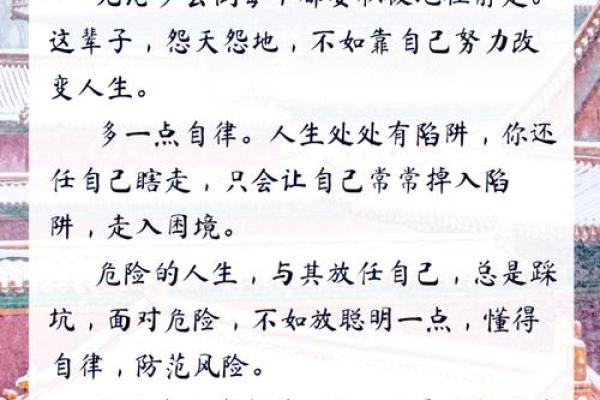 这辈子，怨天怨地，不如靠自己努力改
变人生。
多一点自律。人生处处有陷阱，你还
任自己瞎走，只会让自己常常掉入陷
阱，走入困境。
危险的人生，与其放任自己，总是踩
坑，面对危险，不如放聪明一点，懂得
自律，防范风险。